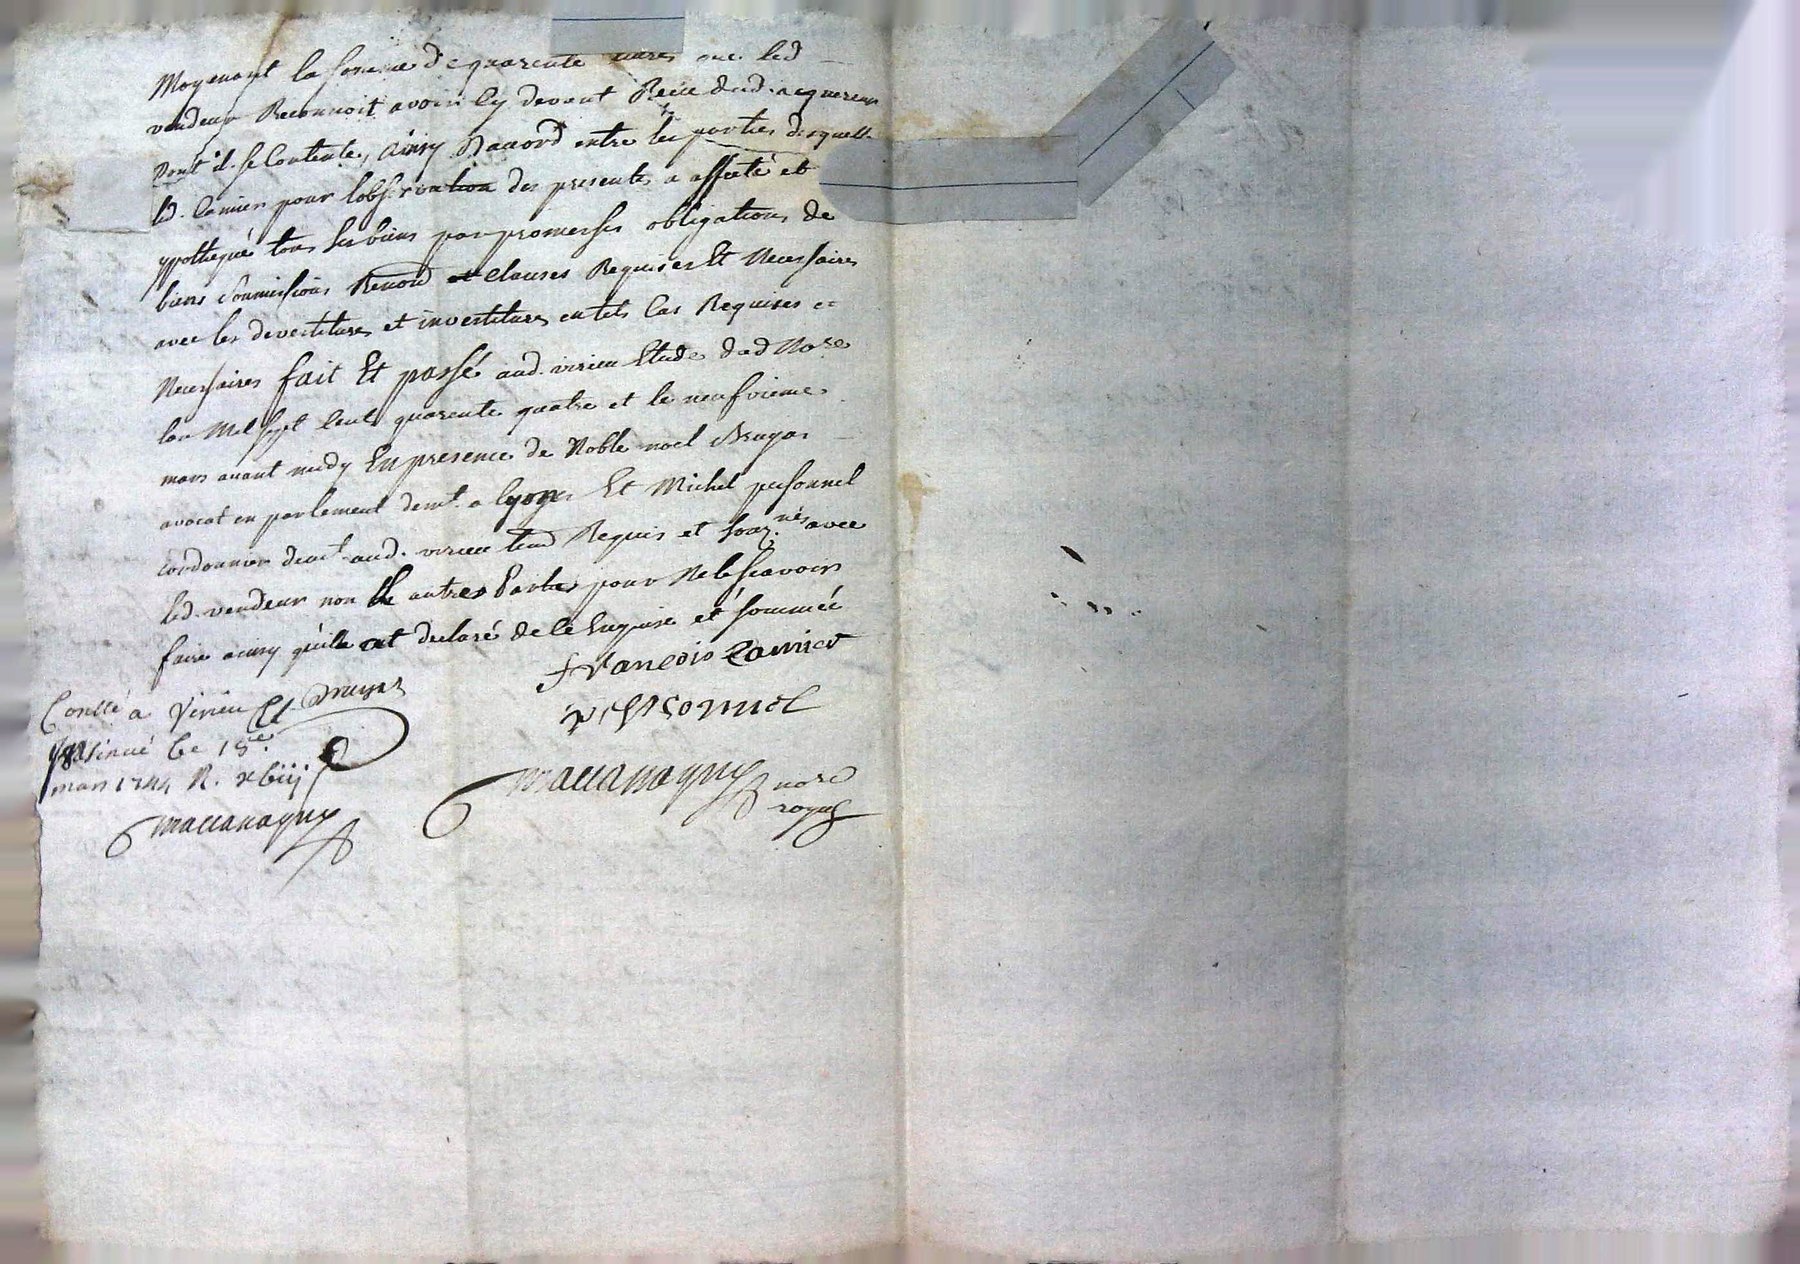 Moyenant la somme de quarente livres que led
vendeur Reconnoit avoir cy devant Receu dud. acquereur
Dont il se Contente, ainsy D'accord entre les parties desquelles
led. Camier pour l'observation des presentes a affecté et
ypothequé tous ses biens par promesses obligations de
biens soumissions Renond et clauses Requises Et Necessaires
avec les devestitures et investitures en tels Cas Requises et
Necessaires fait Et passé aud. virieu Etude dud No.re
lan Mil sept Cent quarente quatre et le neufvieme
mars avant midy En presence de Noble noel Bruyas
avocat en parlement demt. a lyon Et Michel pessonnel
Cordonnier demt. aud. virieu tem Requis et souz.nés avec
led. vendeur non les autres Parties pour Ne le scavoir
faire ainsy quils ont declaré de ce Enquis et sommés
françois Camier
Bruyas
pessonnel
Conllé à Virieu Et
Insinué le 15e.
mars 1744 R. xbiij s
maccanagny
maccanagny nore
royal